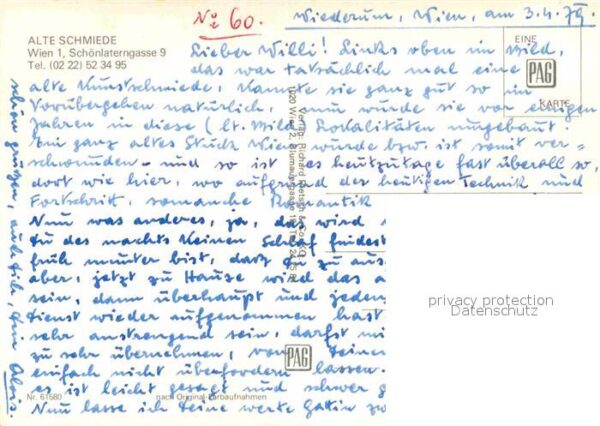 No 60.
Wiederum, Wien, am 3.4.79.
ALTE SCHMIEDE
Wien 1, Schönlaterngasse 9
Tel. (02 22) 52 34 95
EINE
PAG
KARTE
Lieber Willi! Links oben im Bild,
das war tatsächlich mal eine
alte Kunstschmiede, kannte sie ganz gut so im
Vorübergehen natürlich, nun wurde sie vor einigen
Jahren in diese (lt. Bild) Lokalitäten umgebaut.
Ein ganz altes Stück Wien wurde bzw. ist somit ver=
schwunden - und so ist es heutzutage fast überall so,
dort wie hier, wo aufgrund der heutigen Technik und
Fortschritt, so manche Romantik
Nun was anderes, ja, das wird
tu des nachts keinen Schlaf findest
früh munter bist, daß tu zu aus
aber, jetzt zu Hause wird das a
sein, dann überhaupt und jeden
Dienst wieder aufgenommen hast
sehr anstrengend sein, darfst mi
zu sehr übernehmen, von Deinen
einfach nicht überfordern lassen.
es ist leicht gesagt und schwer g
Nun lasse ich Deine werte Gattin zw
schön grüßen, auch Dich, Dein Alois.
Verlag: Richard Pietsch & Co. KG.
PAG
Nr. 61580
nach Original-Farbaufnahmen
privacy protection
Datenschutz